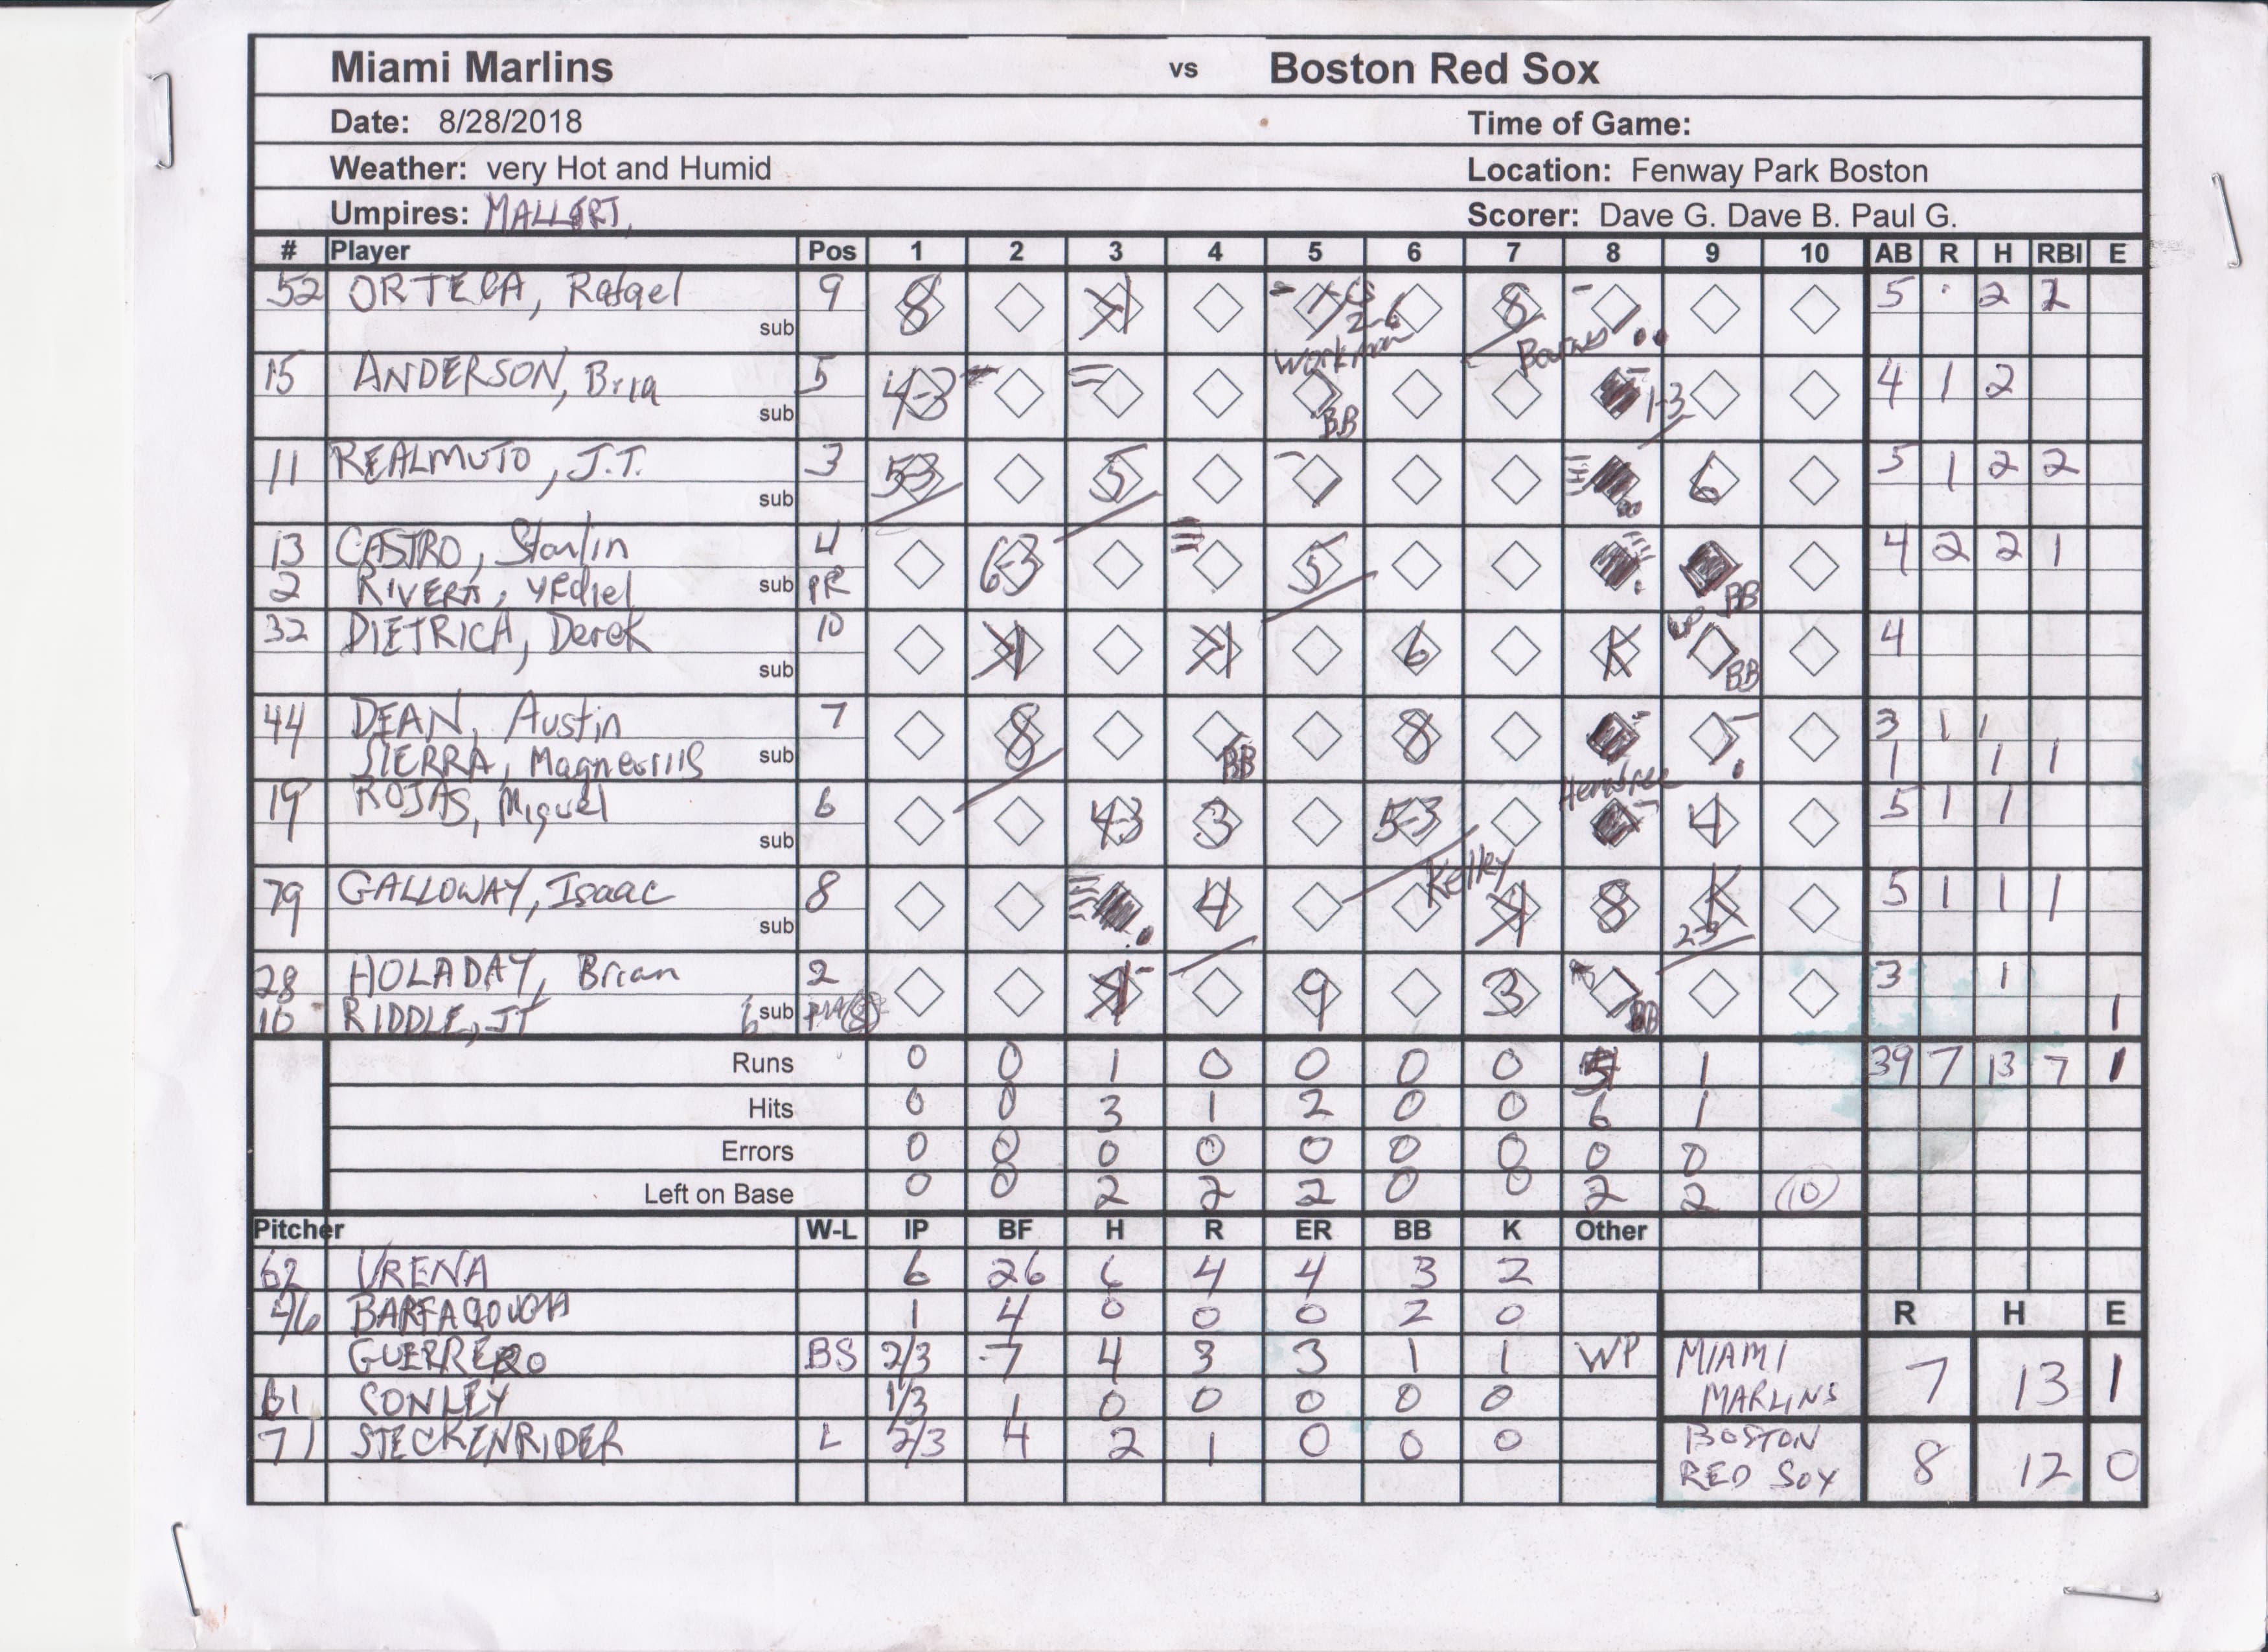 Miami Marlins vs Boston Red Sox
Date: 8/28/2018 Time of Game:
Weather: very Hot and Humid Location: Fenway Park Boston
Umpires: Scorer: Dave G. Dave B. Paul G.
# Player Pos 1 2 3 4 5 6 7 8 9 10 AB R H RBI E
52 ORTEGA, Rafael 9 8 CS 8 5 2
sub 2-6
Workman Barnes
15 ANDERSON, Bria 5 4-3 BB 1-3 4 1 2
sub
11 REALMUTO, J.T. 3 5-3 5 6 5 1 2 2
sub
13 CASTRO, Starlin 4 6-3 5 BB 4 2 2 1
2 RIVERA, Yediel sub PR
32 DIETRICH, Derek 10 6 K WP BB 4
sub
44 DEAN, Austin 7 8 BB 8 3 1 1
SIERRA, Magneuriis sub 1 1 1
Hembree
19 ROJAS, Miguel 6 4-3 3 5-3 4 5 1 1
sub
Kelley
79 GALLOWAY, Isaac 8 4 8 K 2-3 5 1 1 1
sub
28 HOLADAY, Brian 2 9 3 BB 3 1
10 RIDDLE, JT sub 1
Runs 0 0 1 0 0 0 0 5 1 39 7 13 7 1
Hits 0 0 3 1 2 0 0 6 1
Errors 0 0 0 0 0 0 0 0 0
Left on Base 0 0 2 2 2 0 0 2 2 10
Pitcher W-L IP BF H R ER BB K Other
62 URENA 6 26 6 4 4 3 2
46 1 4 0 0 0 2 0 R H E
GUERRERO BS 2/3 7 4 3 3 1 1 WP MIAMI MARLINS 7 13 1
61 CONLEY 1/3 1 0 0 0 0 0
71 STECKENRIDER L 2/3 4 2 1 0 0 0 BOSTON RED SOX 8 12 0